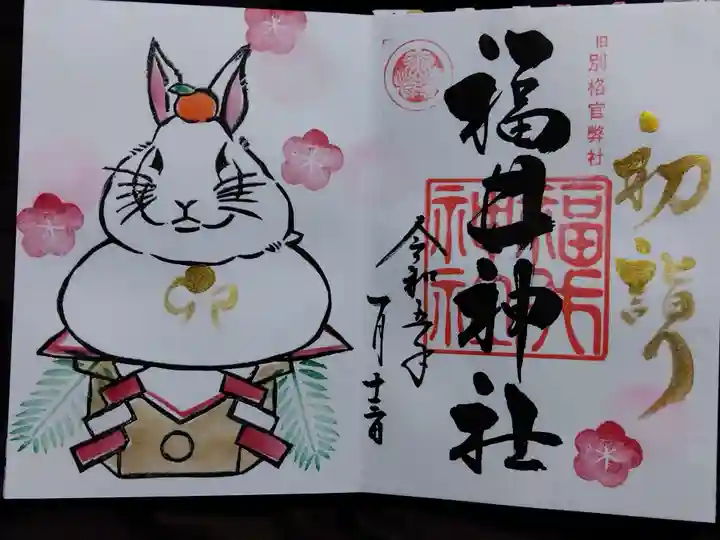 初詣り
旧別格官弊社
福井神社
福井
神社
令和五年
一月十三日
卯